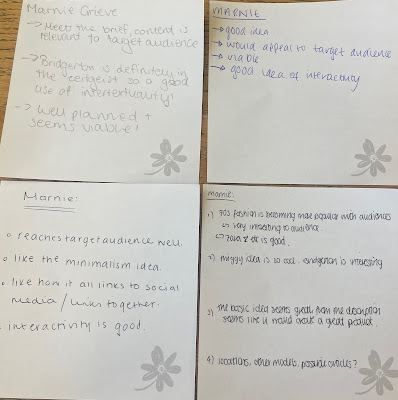 Marnie Grieve
→ Meets the brief, content is
relevant to target audience
→ Bridgerton is definitely in
the zeitgeist so a good
use of intertextuality!
→ Well planned +
seems viable!
MARNIE
→ good idea
→ would appeal to target audience
→ viable
→ good idea of interactivity
Marnie:
• reaches target audience well.
• like the minimalism idea.
• like how it all links to social
media / links together.
• interactivity is good.
marnie:
1) 70s fashion is becoming more popular with audiences
↳ very interesting to audience.
is good.
2) idea is so cool. bridgerton is interesting
3) The basic idea seems great from the description
seems like it would create a great product.
4) locations, other models, possible articles?